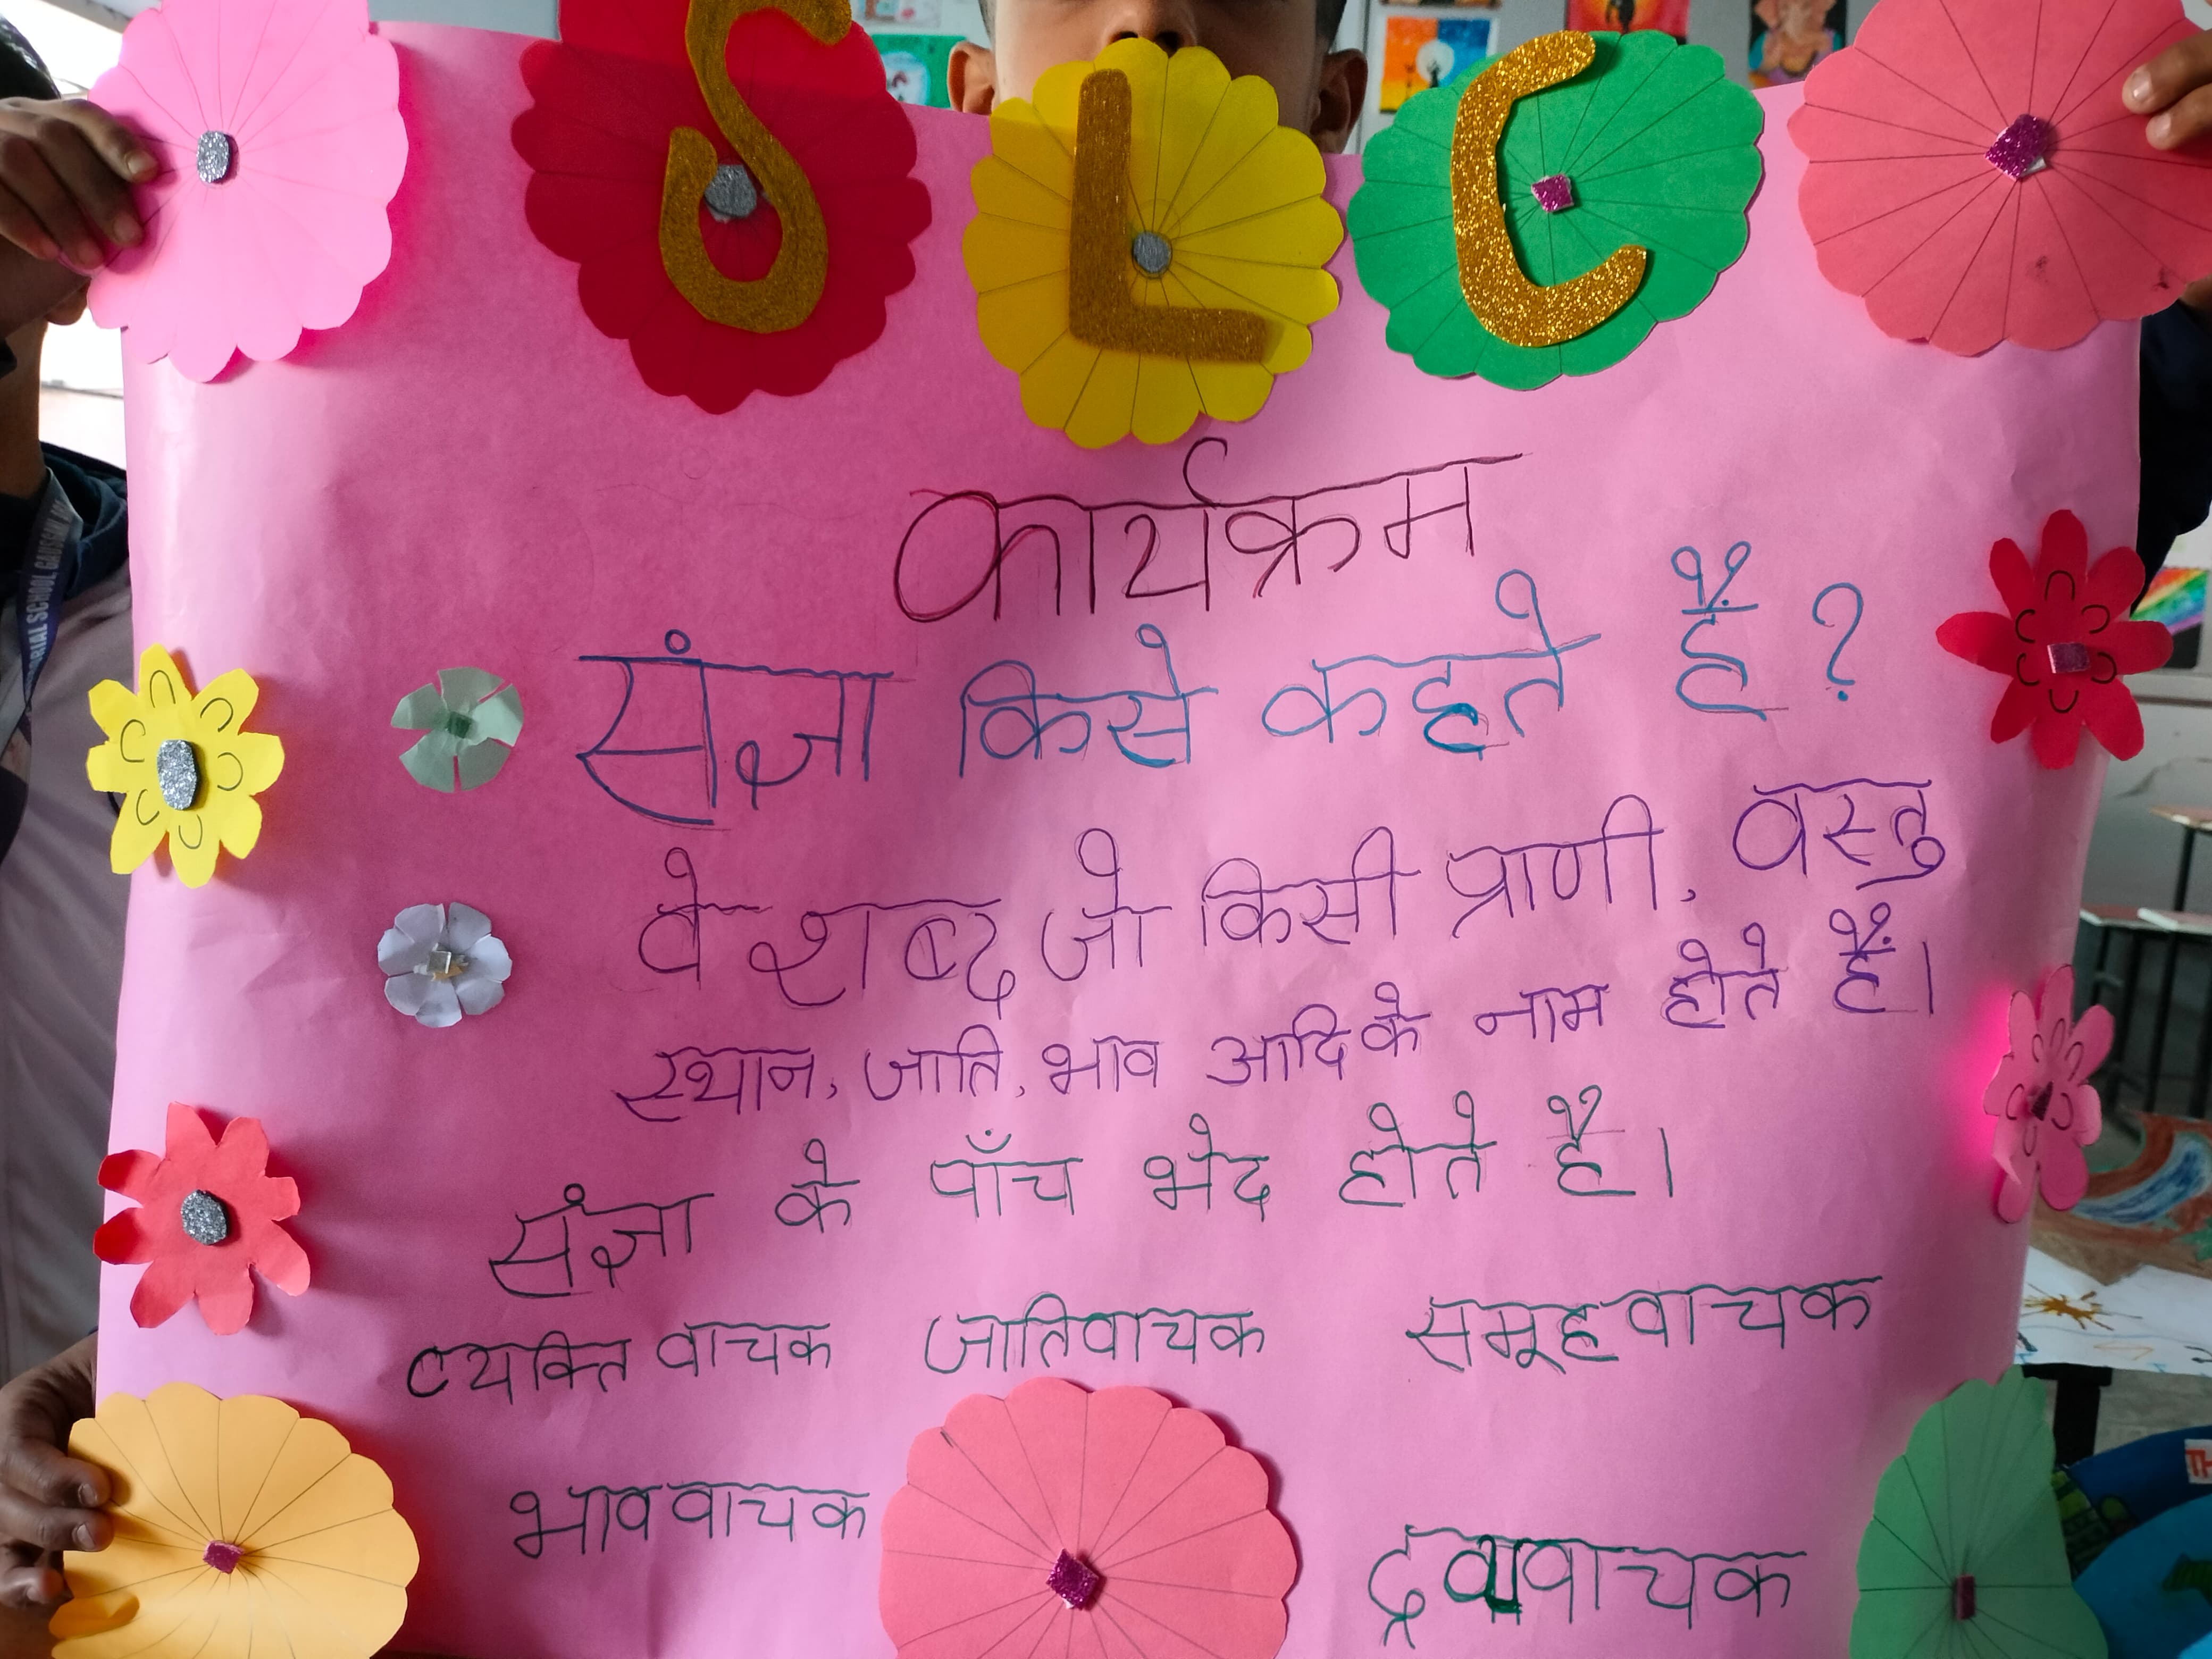 S L C
कार्यक्रम
संज्ञा किसे कहते हैं ?
वे शब्द जो किसी प्राणी, वस्तु
स्थान, जाति, भाव आदि के नाम होते हैं।
संज्ञा के पाँच भेद होते हैं।
व्यक्ति वाचक जातिवाचक समूहवाचक
भाववाचक
द्रव्यवाचक